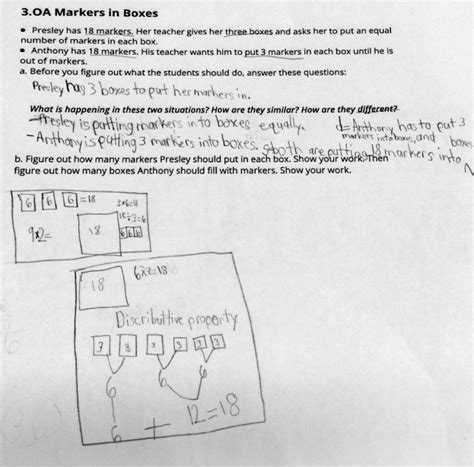 3.OA Markers in Boxes
• Presley has 18 markers. Her teacher gives her three boxes and asks her to put an equal
number of markers in each box.
• Anthony has 18 markers. His teacher wants him to put 3 markers in each box until he is
out of markers.
a. Before you figure out what the students should do, answer these questions:
Presley has 3 boxes to put her markers in.
What is happening in these two situations? How are they similar? How are they different?
-Presley is putting markers into boxes equally. d= Anthony has to put 3
markers into boxes, and boxes
-Anthony is putting 3 markers into boxes. s both are putting 18 markers into
b. Figure out how many markers Presley should put in each box. Show your work. Then
figure out how many boxes Anthony should fill with markers. Show your work.
6 6 6 =18
18÷3=6
9×2= 18 6 6 6
18 6×3=18
Discributtive property
3 3 3 3 3 3
6 6 6
6 + 12=18